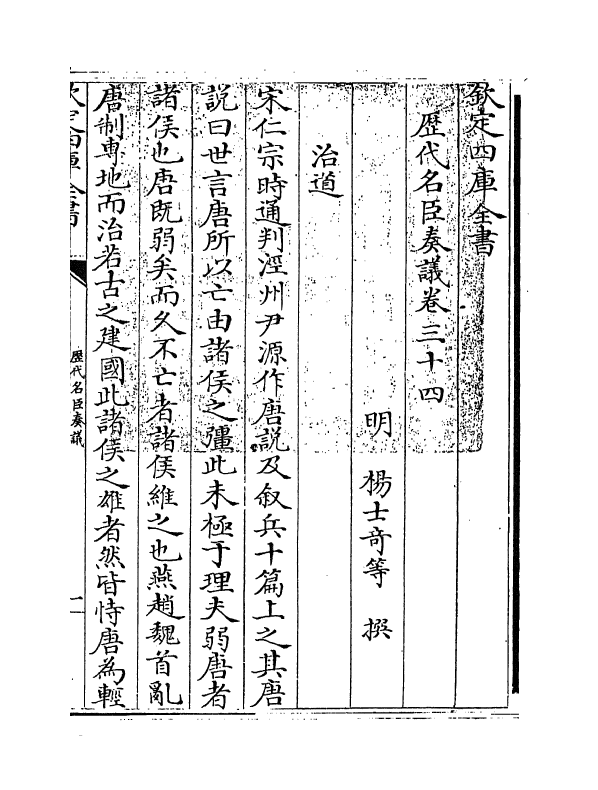 欽定四庫全書
歴代名臣奏議卷三十四
明　楊士竒等　撰
治道
宋仁宗時通判涇州尹源作唐説及叙兵十篇上之其唐
説曰世言唐所以亡由諸侯之彊此未極于理夫弱唐者
諸侯也唐既弱矣而久不亡者諸侯維之也燕趙魏首亂
唐制専地而治若古之建國此諸侯之雄者然皆恃唐為輕
欽定四庫全書
歴代名臣奏議
一